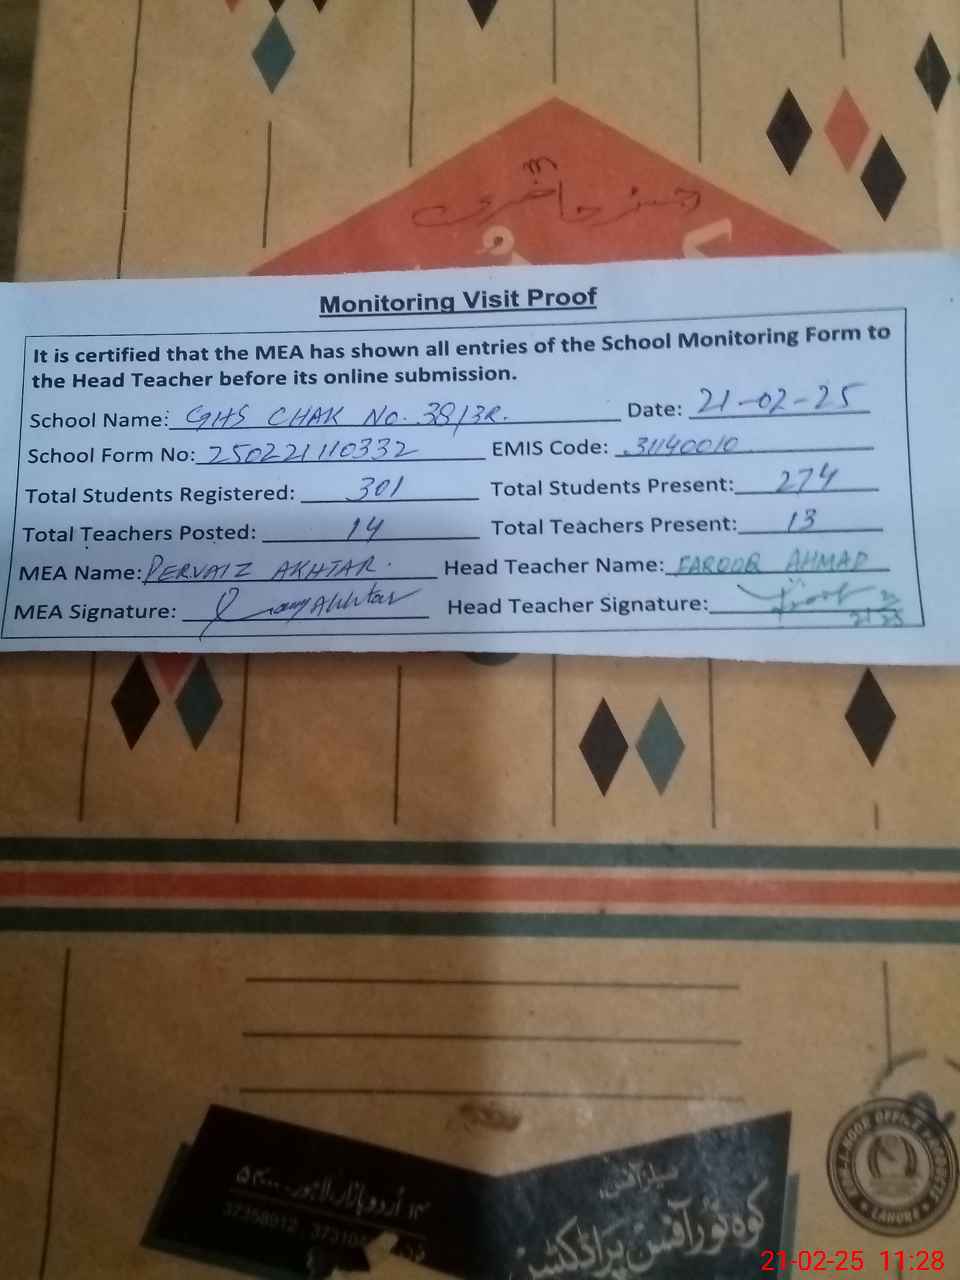 رجسٹر حاضری
Monitoring Visit Proof
It is certified that the MEA has shown all entries of the School Monitoring Form to
the Head Teacher before its online submission.
School Name: GHS CHAK No. 38/3R. Date: 21-02-25
School Form No: 250221110332 EMIS Code: 31140010
Total Students Registered: 301 Total Students Present: 274
Total Teachers Posted: 14 Total Teachers Present: 13
MEA Name: PERVAIZ AKHTAR. Head Teacher Name: FAROOR AHMAD
MEA Signature: Akhtar Head Teacher Signature:
سیلز آفس
کوہ نور آفس پراڈکٹس
۱۳ اُردو بازار، لاہور
37358912
KOH-I-NOOR OFFICE PRODUCTS
LAHORE
21-02-25 11:28